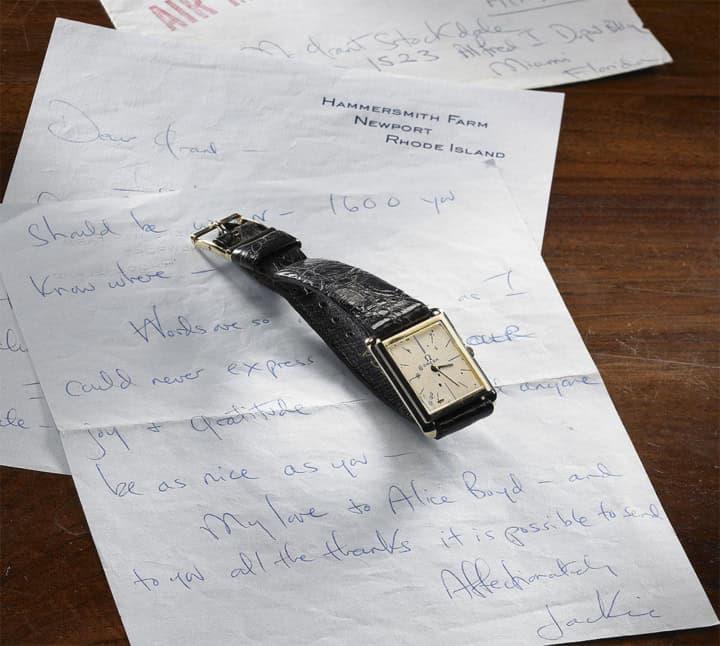 AIR
Grant Stockdale
1523 Alfred I Dupont Bldg
Miami
Florida
HAMMERSMITH FARM
NEWPORT
RHODE ISLAND
Dear Grant —
Should be — 1600 you
Know where —
Words are so as I
Could never express
joy & gratitude anyone
be as nice as you —
My love to Alice Boyd — and
to you all the thanks it is possible to send
Affectionately
Jackie
Ω
OMEGA